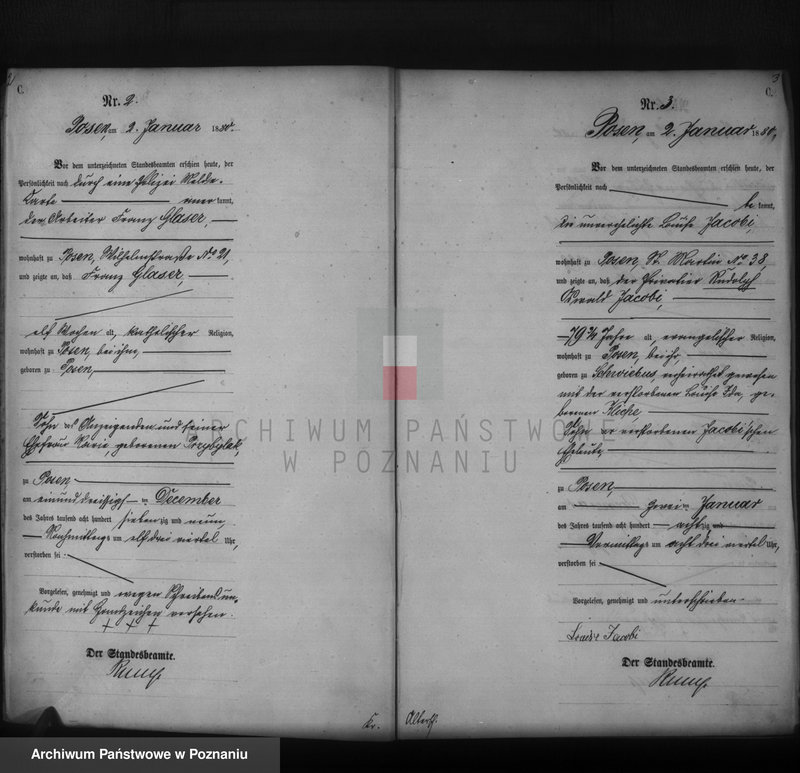 2
C.
Nr. 2.
Posen, am 2. Januar 1880.
Vor dem unterzeichneten Standesbeamten erschien heute, der
Persönlichkeit nach durch eine Polizei Melde-
Karte anerkannt,
der Arbeiter Franz Glaser,
wohnhaft zu Posen, Wilhelmstraße No 21,
und zeigte an, daß Franz Glaser,
elf Wochen alt, katholischer Religion,
wohnhaft zu Posen, bei ihm,
geboren zu Posen,
Sohn des Anzeigenden und seiner
Ehefrau Marie, geborenen Przybylak,
zu Posen
am einunddreißigsten December
des Jahres tausend acht hundert siebenzig und neun
Nachmittags um elf drei viertel Uhr,
verstorben sei
Vorgelesen, genehmigt und wegen Schreibensun-
kunde mit Handzeichen versehen.
+ + +
Der Standesbeamte.
Kr.
3
C.
Nr. 3.
Posen, am 2. Januar 1880.
Vor dem unterzeichneten Standesbeamten erschien heute, der
Persönlichkeit nach
bekannt,
die unverehelichte Louise Jacobi,
wohnhaft zu Posen, St. Martin No 38
und zeigte an, daß der Privatier Rudolph
Ewald Jacobi,
79 3/4 Jahre alt, evangelischer Religion,
wohnhaft zu Posen, bei ihr,
geboren zu Schwiebus, verheirathet gewesen
mit der verstorbenen Louise Ida, ge-
borenen
Sohn der verstorbenen Jacobi'schen
Eheleute,
zu Posen,
am zweiten Januar
des Jahres tausend acht hundert achtzig
Vormittags um acht drei viertel Uhr,
verstorben sei
Vorgelesen, genehmigt und unterschrieben
Louise Jacobi
Der Standesbeamte.
Altersch.
ARCHIWUM PAŃSTWOWE
W POZNANIU
Archiwum Państwowe w Poznaniu